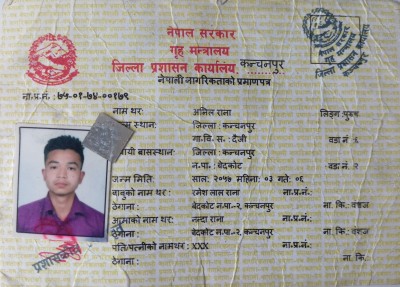 नेपाल सरकार
गृह मन्त्रालय
जिल्ला प्रशासन कार्यालय, कन्चनपुर
नेपाली नागरिकताको प्रमाणपत्र
ना.प्र.नं.: ७५-०१-७४-००१७९
नाम थर: अनिल राना लिङ्ग: पुरुष
स्थान: जिल्ला: कन्चनपुर
गा.वि.स.: दैजी वडा नं.
यी बासस्थान: जिल्ला: कन्चनपुर
न.पा.: बेदकोट वडा नं. २
जन्म मिति: साल: २०५७ महिना: ०३ गते: ०६
बाबुको नाम थर: रमेश लाल राना ना.प्र.नं.:
ठेगाना: बेदकोट न.पा.-२, कन्चनपुर ना. कि.: वंशज
आमाको नाम थर: नन्दा राना ना.प्र.नं.:
ठेगाना: बेदकोट न.पा.-२, कन्चनपुर ना. कि.: वंशज
पति/पत्नीको नाम थर: XXX ना.प्र.नं.:
ठेगाना: ना. कि.: